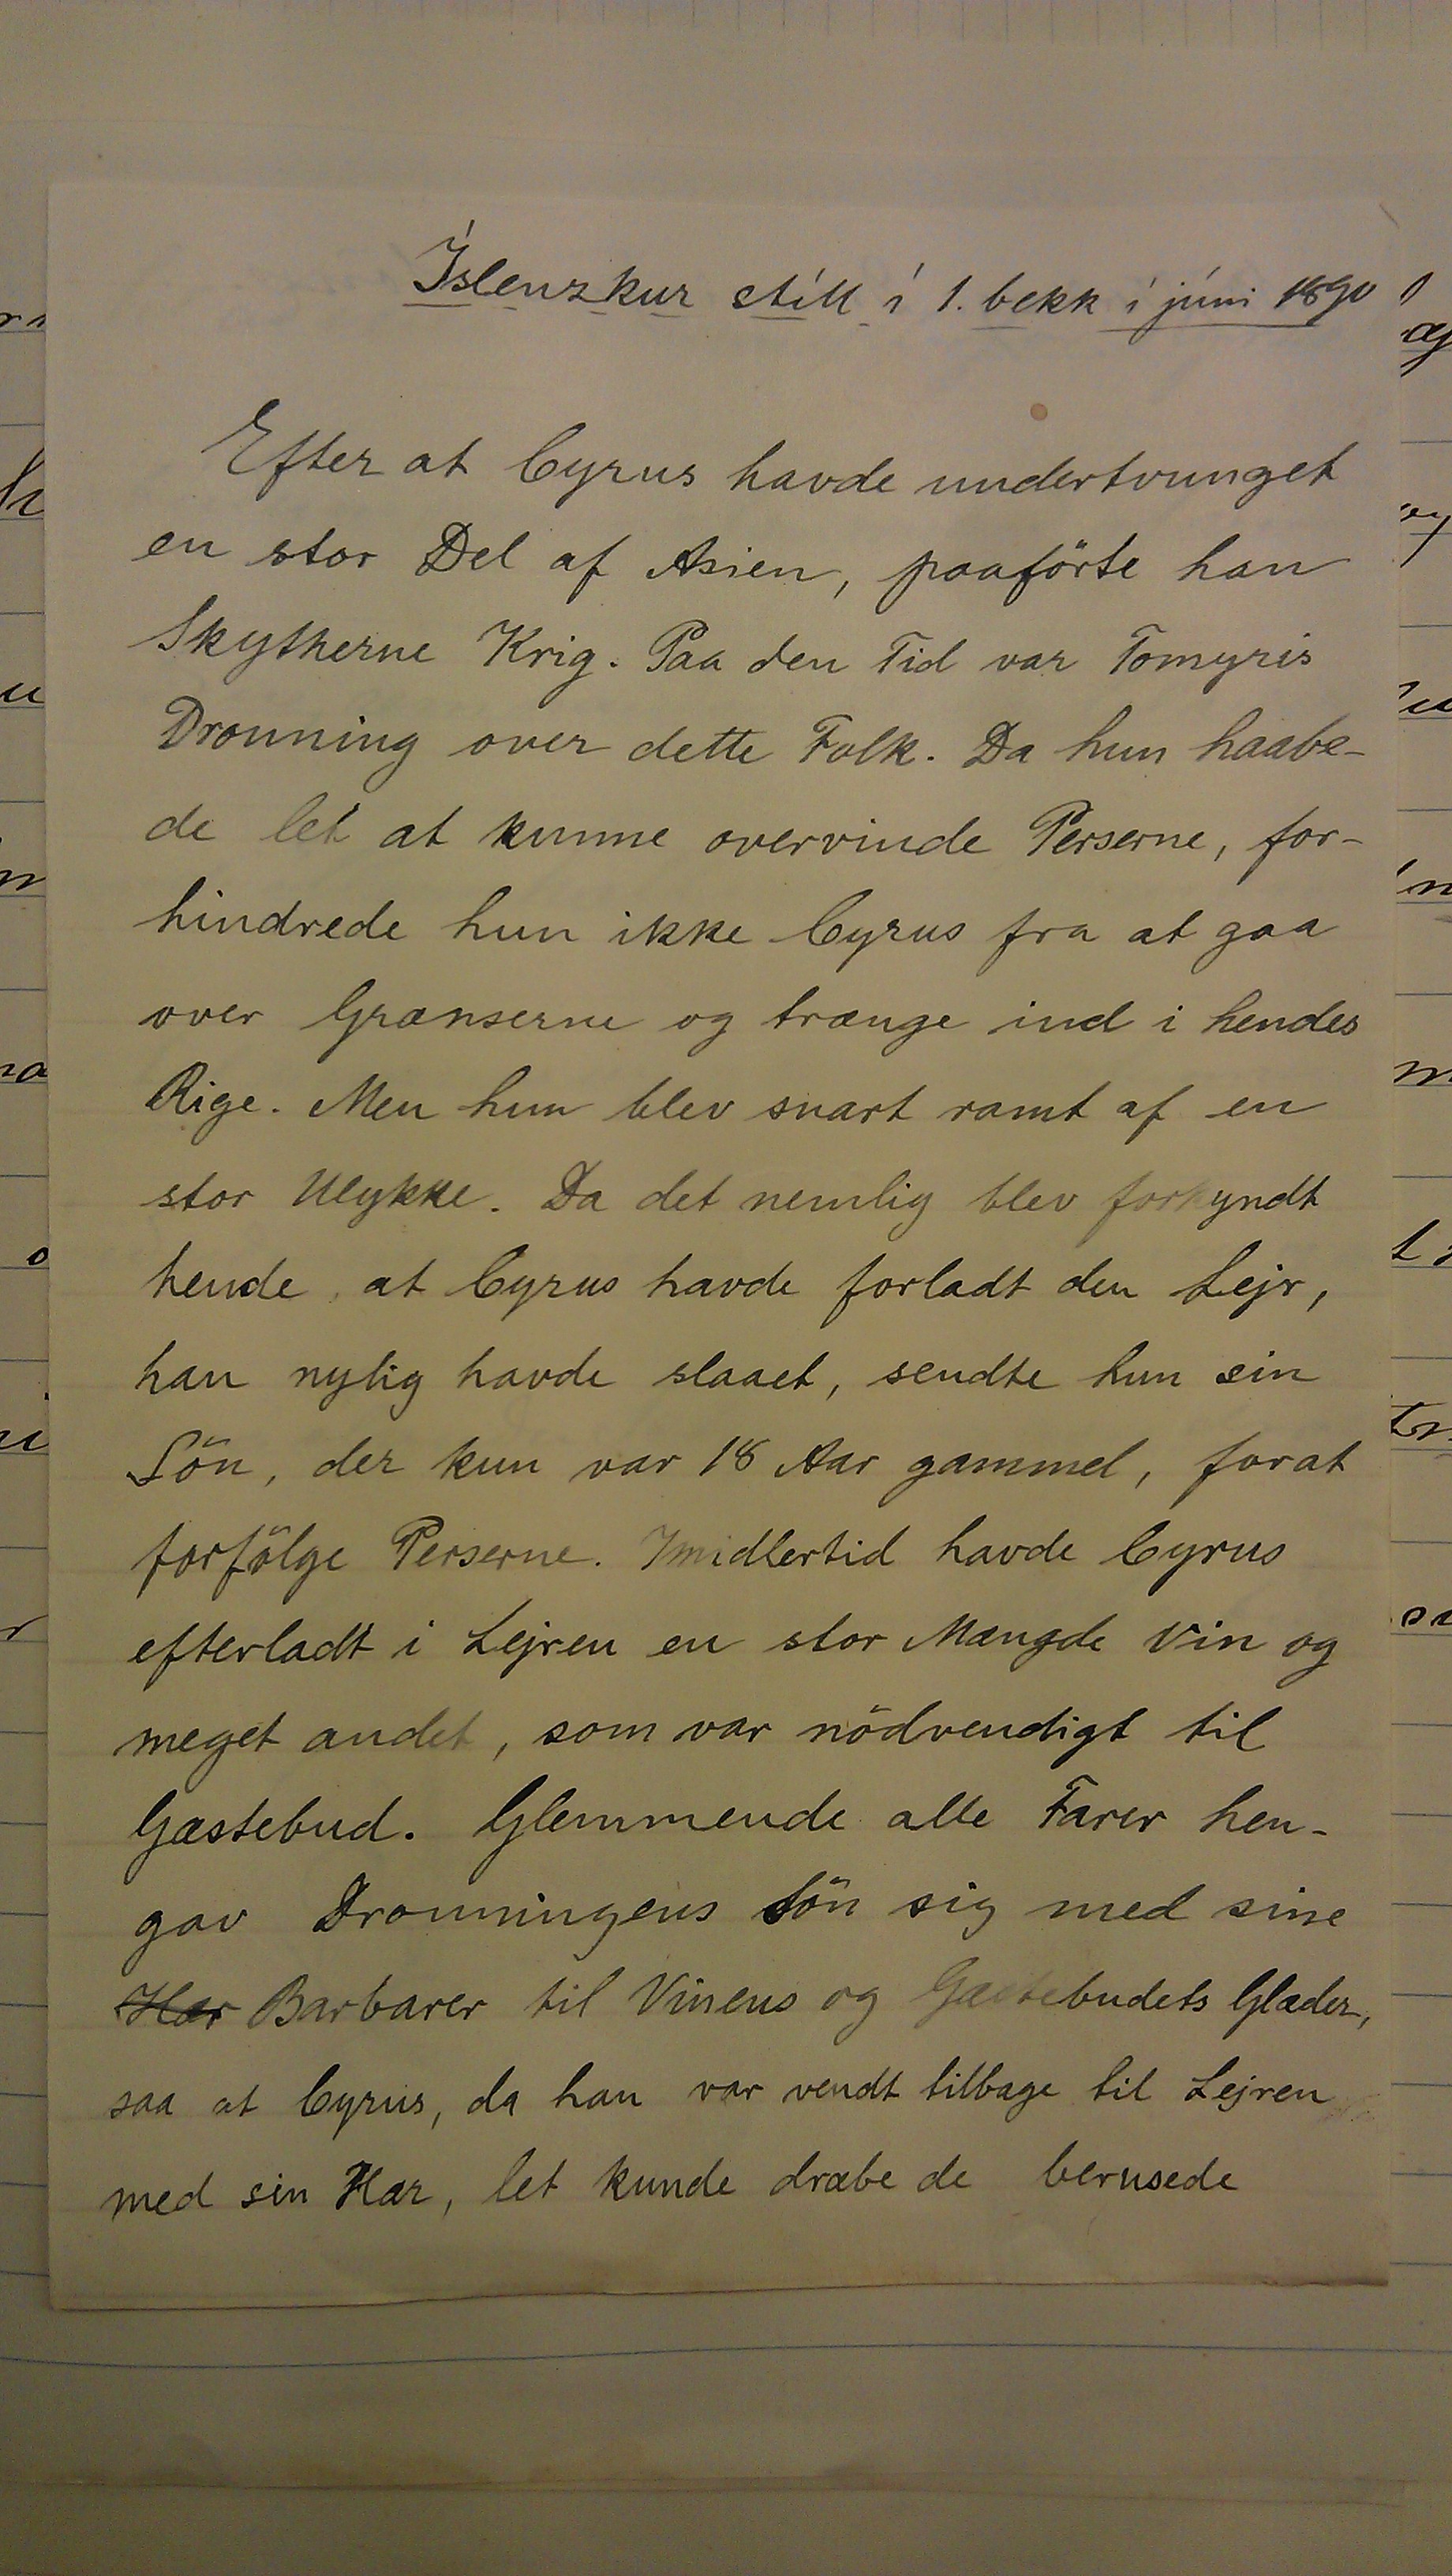 Íslenzkur stíll í 1. bekk í júni 1890
Efter at Cyrus havde undertvunget
en stor Del af Asien, paaförte han
Skytherne Krig. Paa den Tid var Tomyris
Dronning over dette Folk. Da hun haabe-
de let at kunne overvinde Perserne, for-
hindrede hun ikke Cyrus fra at gaa
over Grænserne og trænge ind i hendes
Rige. Men hun blev snart ramt af en
stor Ulykke. Da det nemlig blev forkyndt
hende, at Cyrus havde forladt den Lejr,
han nylig havde slaaet, sendte hun sin
Sön, der kun var 18 Aar gammel, forat
forfölge Perserne. Imidlertid havde Cyrus
efterladt i Lejren en stor Mængde Vin og
meget andet, som var nödvendigt til
Gæstebud. Glemmende alle Farer hen-
gav Dronningens Sön sig med sine
Hær Barbarer til Vinens og Gæstebudets Glæder,
saa at Cyrus, da han var vendt tilbage til Lejren
med sin Hær, let kunde dræbe de berusede